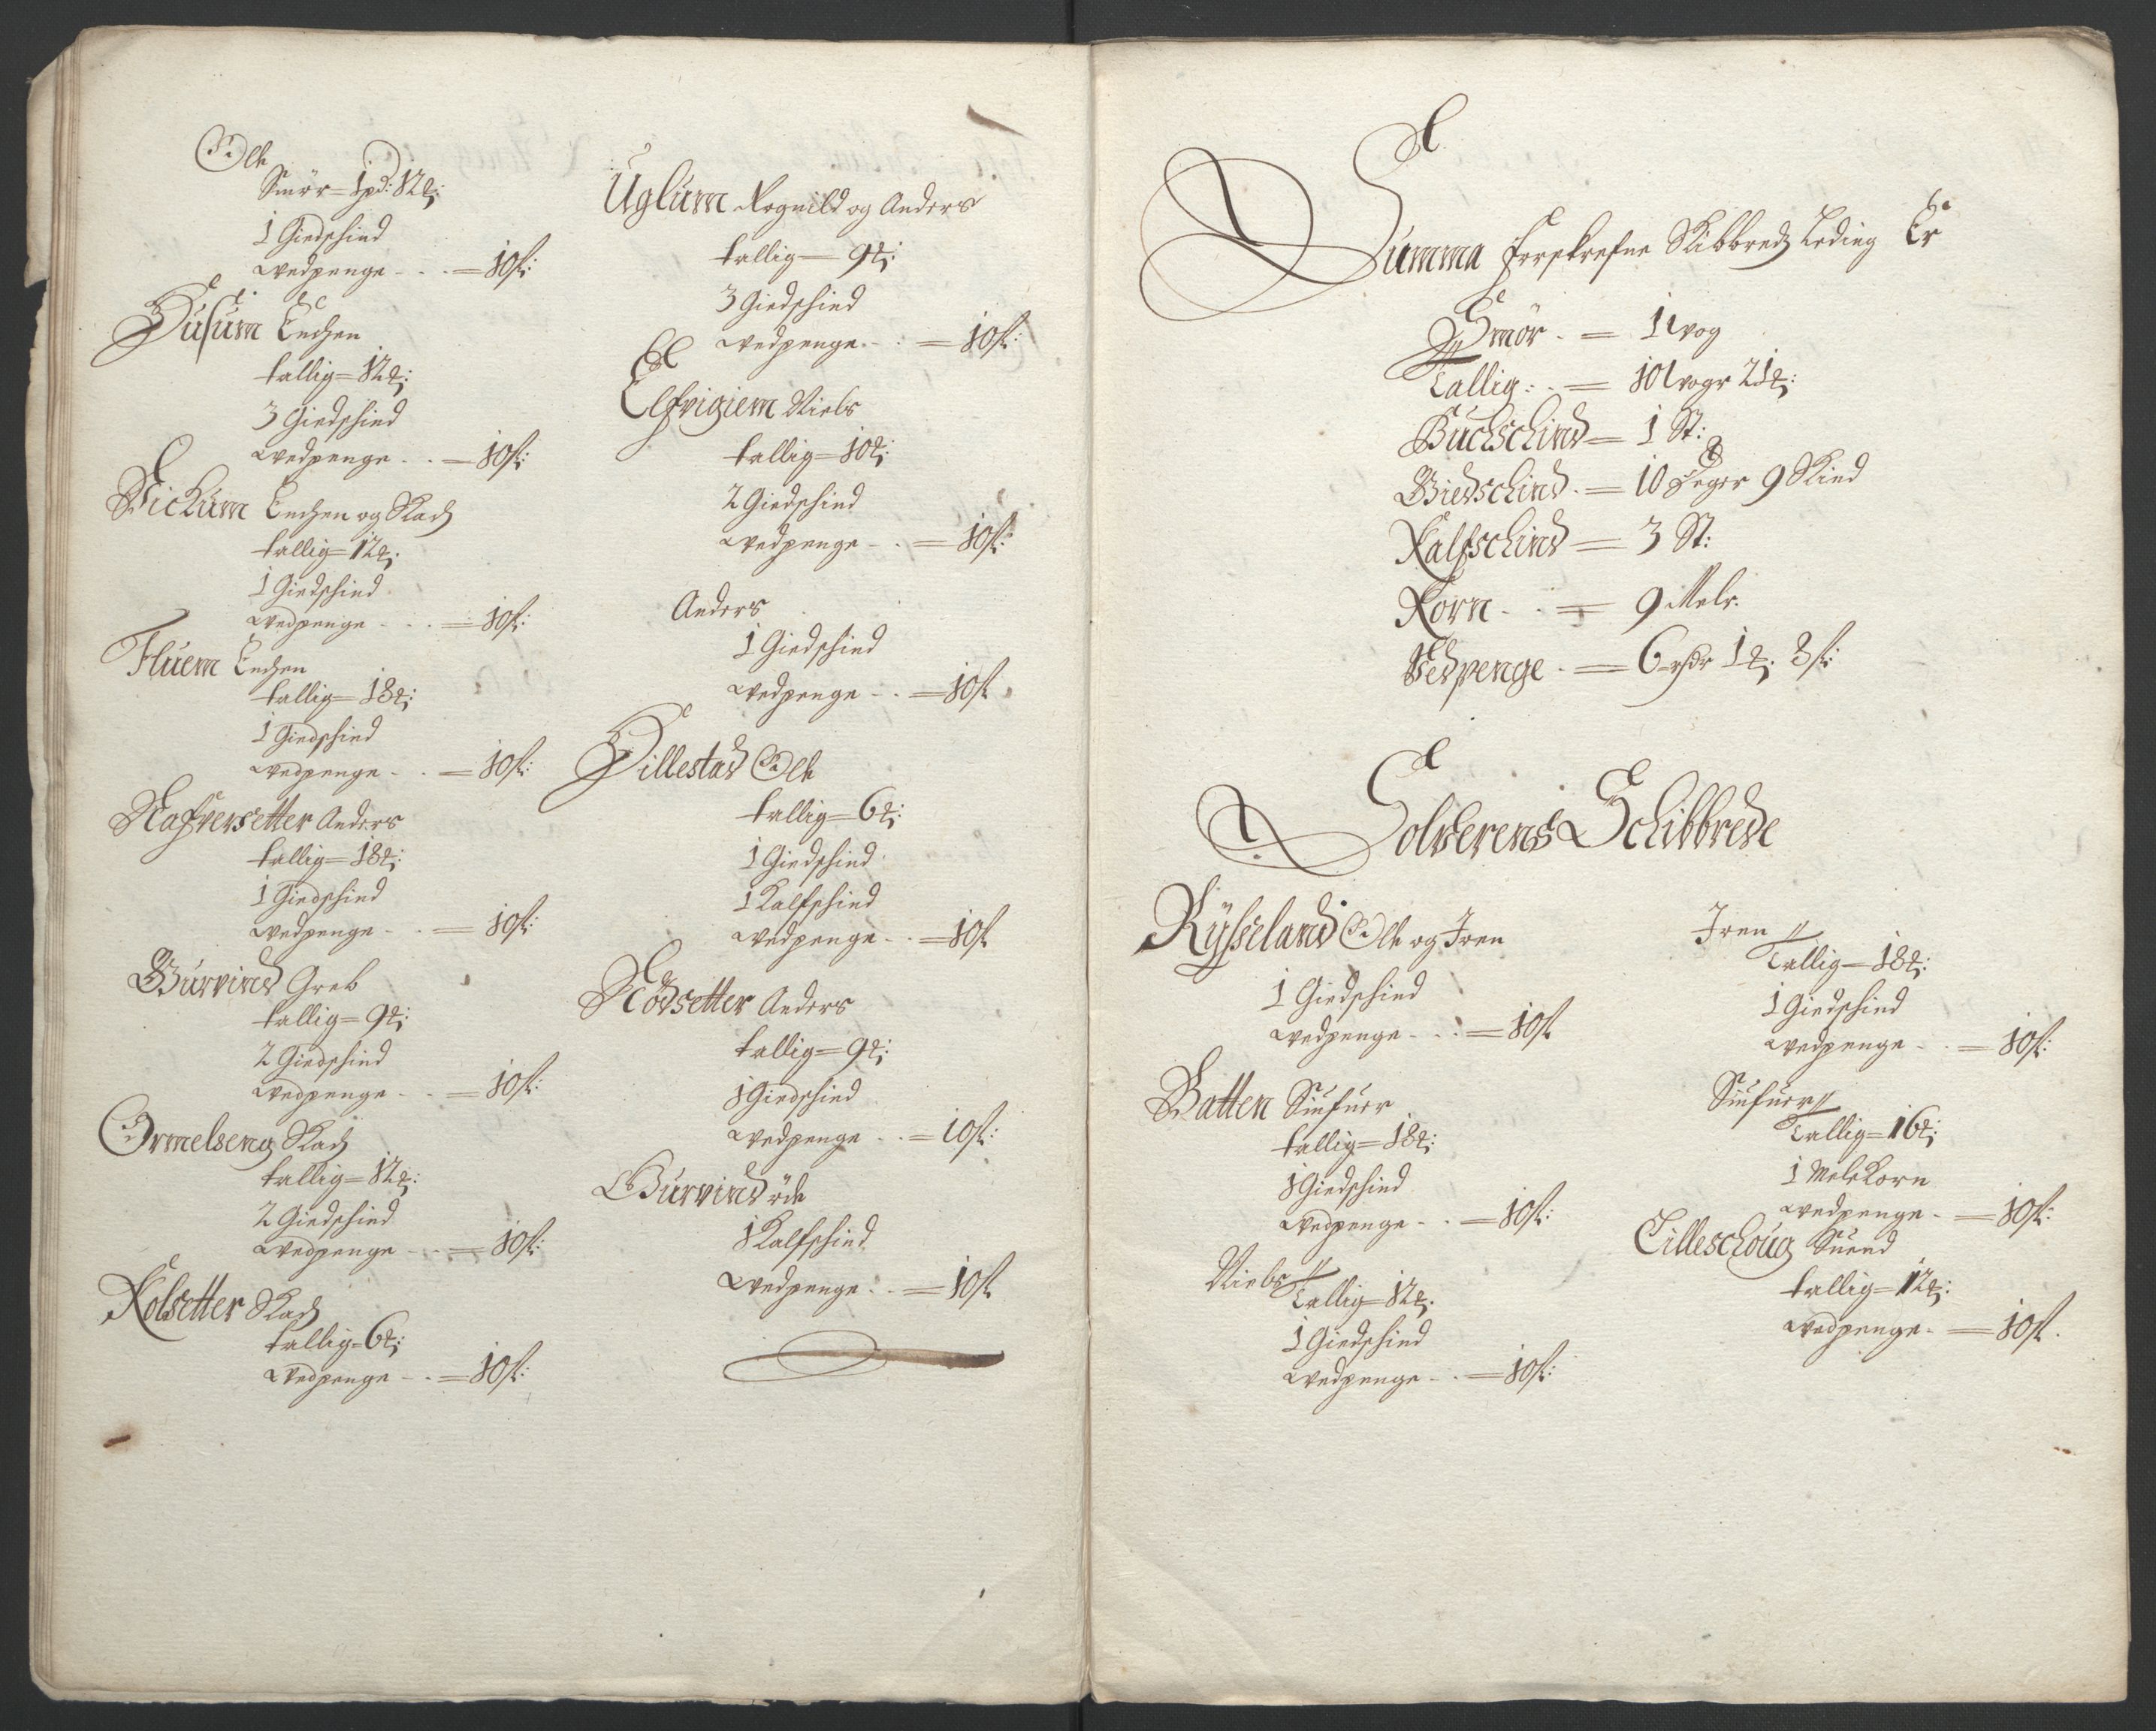 Ole
Smör = 1 pd: 12 ℔:
1 Giedschind
wedpenge - . . = 10 ſ:
Husum Enchen
tallig = 12 ℔:
3 Giedschind
wedpenge - . = 10 ſ:
Vichum Enchen og Mads
tallig = 12 ℔:
1 Giedschind
wedpenge - . . = 10 ſ:
Fluem Enchen
tallig = 18 ℔:
1 Giedschind
wedpenge - . = 10 ſ:
Hafversetter Anders
tallig = 18 ℔:
1 Giedschind
wedpenge - . = 10 ſ:
Burvind Greb
tallig = 9 ℔:
2 Giedschind
wedpenge - . = 10 ſ:
Ormelseng Mads
tallig = 12 ℔:
2 Giedschind
wedpenge - . = 10 ſ:
Kolsetter Mads
tallig = 6 ℔:
wedpenge - . = 10 ſ:
Uglum Rognild og Anders
tallig = 9 ℔:
3 Giedschind
wedpenge - . = 10 ſ:
Elfvigiem Niels
tallig = 10 ℔:
2 Giedschind
wedpenge - . = 10 ſ:
Anders
1 Giedschind
wedpenge - . = 10 ſ
Hillestad Ole
tallig = 6 ℔:
1 Giedschind
1 Kalfschind
wedpenge - . = 10 ſ
Nodsetter Anders
tallig = 9 ℔:
1 Giedschind
wedpenge - . = 10 ſ:
Gurvind öde
1 Kalfschind
wedpenge - . = 10 ſ
Summa forskrefne Skibbreds Leding Er
Smör . = 1 wog
Tallig . . = 10 wogr 21 ℔:
Buchschind = 1 St:
Giedschind . = 10 Deger 9 Skind
Kalfschind = 3 St:
Korn - . = 9 Meler.
Vedpenge . = 6 rdr 1 ℔: 8 ſ:
Solverens Schibbrede
Rysseland Ole og Iven
1 Giedschind
wedpenge - . . = 10 ſ
Batten Siufuer
tallig = 18 ℔:
1 Giedschind
wedpenge - . = 10 ſ:
Niels //
Tallig = 12 ℔:
1 Giedschind
wedpenge - . = 10 ſ:
Iven //
Tallig = 18 ℔:
1 Giedschind
wedpenge - . = 10 ſ:
Siufuer //
Tallig = 16 ℔:
1 Mele Korn
wedpenge - = 10 ſ:
Lilleschoug Suend
tallig = 12 ℔:
wedpenge - = 10 ſ.